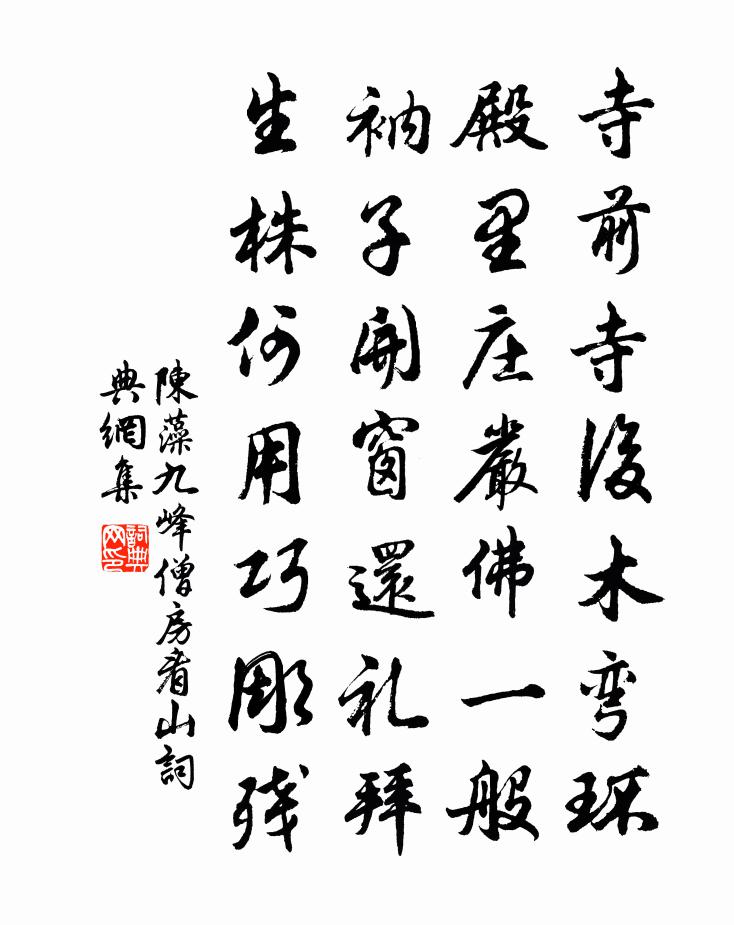 寺前寺後木弯环
殿里庄嚴佛一般
衲子開窗還礼拜
生株何用巧彫残
陳藻九峰僧房看山詞
典網集
詞典网印